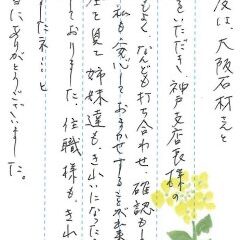 度は、大阪石材さんと
をいただき、神戸支店長様の
もよく、なんども打ち合わせ、確認も
私も安心しておまかせすることが出来
座を見て姉妹達も、きれいになった
ておりました。住職様も、きれ
たネ…と
にありがとうございました。